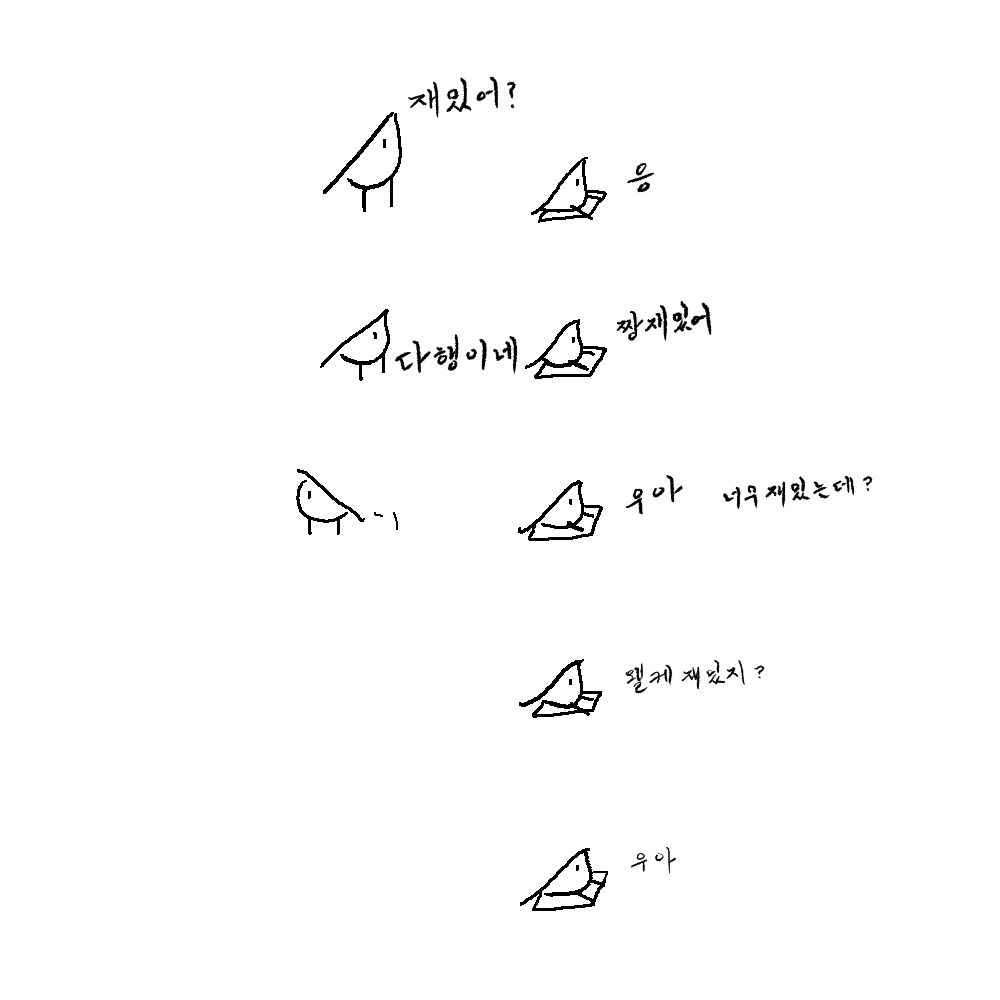 재밌어?
응
다행이네
짱재밌어
우아
너무 재밌는데?
웰케 재밌지?
우아